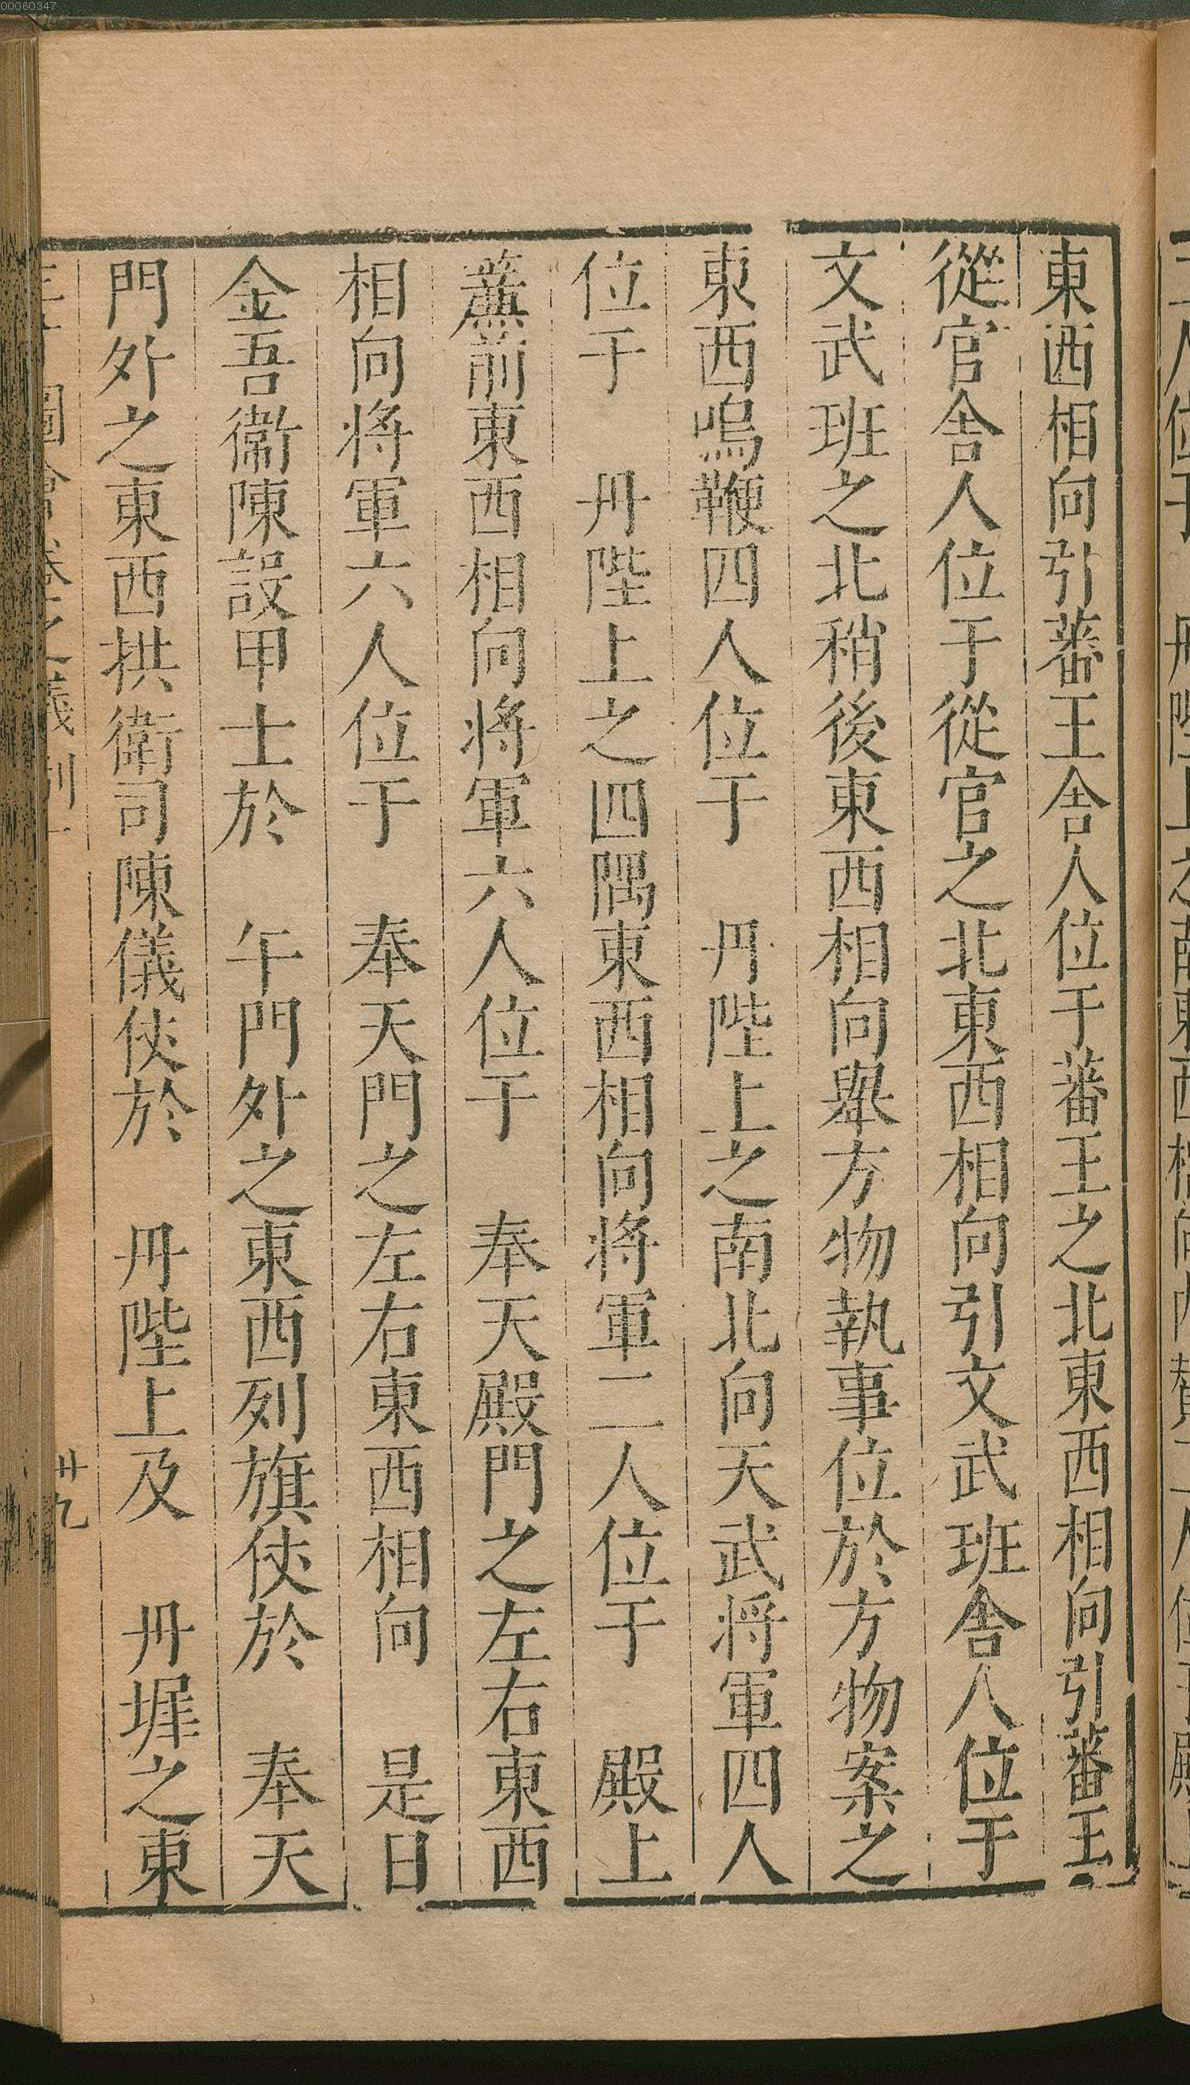 00060347
東西相向引蕃王舍人位于蕃王之北東西相向引蕃王
從官舍人位于從官之北東西相向引文武班舍人位于
文武班之北稍後東西相向舉方物執事位於方物案之
東西鳴鞭四人位于　丹陛上之南北向天武將軍四人
位于　丹陛上之四隅東西相向將軍二人位于　殿上
簾前東西相向將軍六人位于　奉天殿門之左右東西
相向將軍六人位于　奉天門之左右東西相向　是日
金吾衞陳設甲士於　午門外之東西列旗伕於　奉天
門外之東西拱衛司陳儀伕於　丹陛上及　丹墀之東
圖會 卷之儀制一 廿九